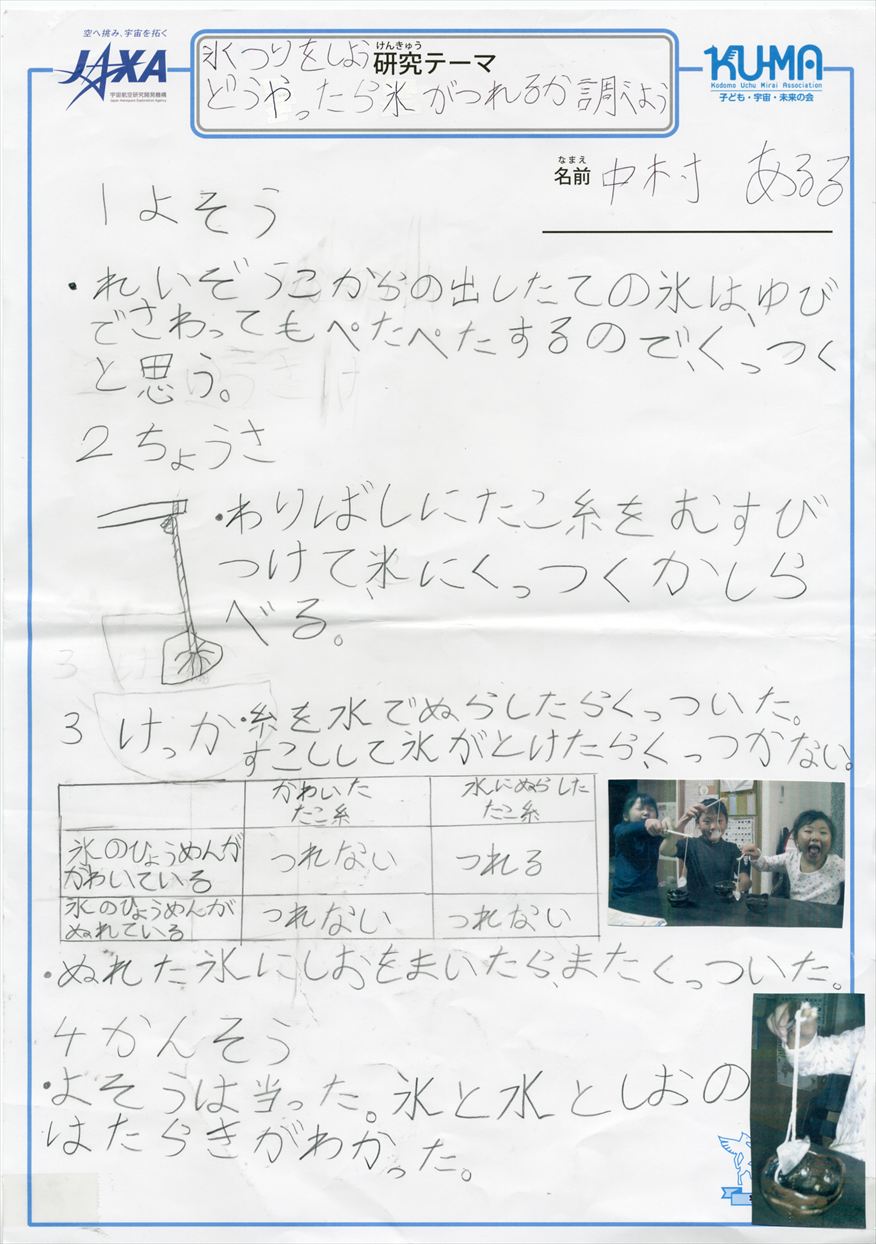 空へ挑み、宇宙を拓く
JAXA
宇宙航空研究開発機構
Japan Aerospace Exploration Agency
けんきゅう
研究テーマ
氷つりをしよう
どうやったら氷がつれるか調べよう
KU-MA
Kodomo Uchu Mirai Association
子ども・宇宙・未来の会
なまえ
名前 中村 あるる
1よそう
・れいぞうこからの出したての氷は、ゆび
でさわってもぺたぺたするので、くっつく
と思う。
2ちょうさ
・わりばしにたこ糸をむすび
つけて、氷にくっつくかしら
べる。
3 けっか・糸を水でぬらしたらくっついた。
すこしして氷がとけたら、くっつかない。
かわいた
たこ糸
水にぬらした
たこ糸
氷のひょうめんが
かわいている
つれない
つれる
氷のひょうめんが
ぬれている
つれない
つれない
・ぬれた氷にしおをまいたら、またくっついた。
4かんそう
・よそうは当った。氷と水としおの
はたらきがわかった。